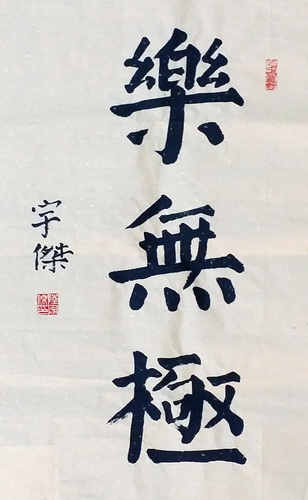 樂無極
宇傑